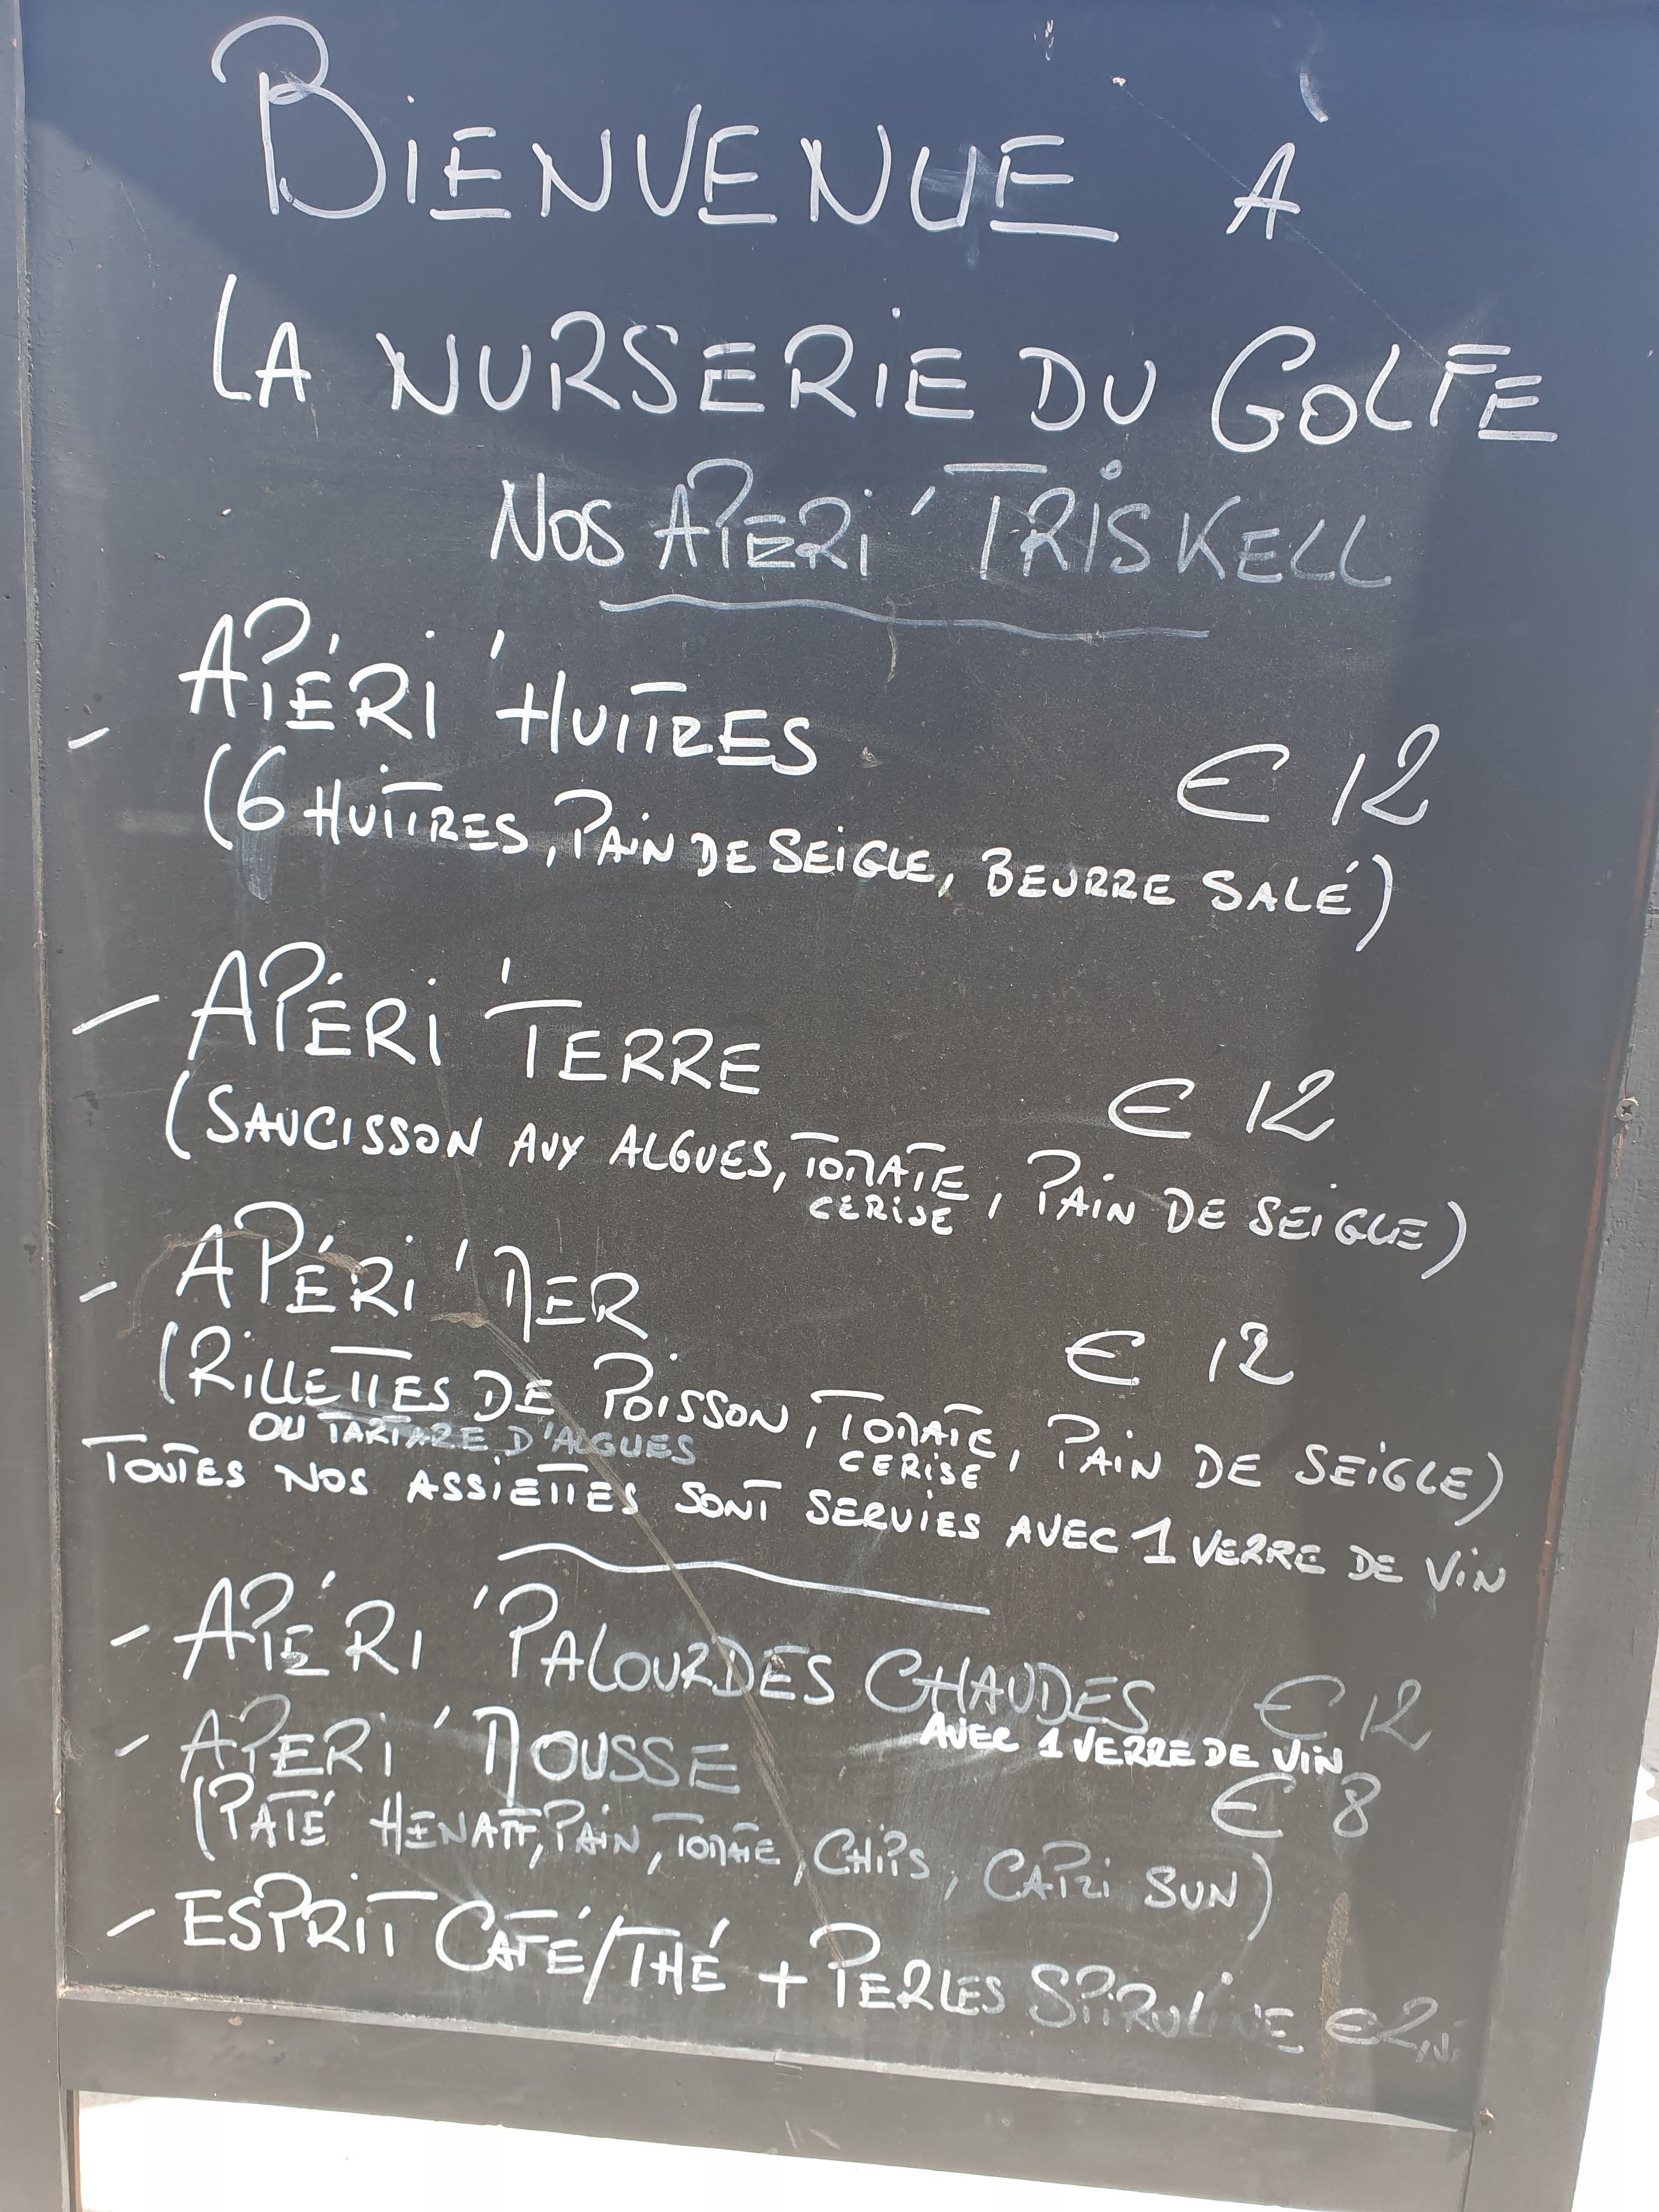 BIENVENUE À
LA NURSERIE DU GOLFE
NOS APERI' TRISKELL
- APÉRI' HUITRES € 12
(6 HUITRES, PAIN DE SEIGLE, BEURRE SALÉ)
- APÉRI' TERRE € 12
(SAUCISSON AUX ALGUES, TOMATE CERISE, PAIN DE SEIGLE)
- APÉRI' MER € 12
(RILLETTES DE POISSON, TOMATE CERISE, PAIN DE SEIGLE)
OU TARTARE D'ALGUES
TOUTES NOS ASSIETTES SONT SERVIES AVEC 1 VERRE DE VIN
- APÉRI' PALOURDES CHAUDES € 12
AVEC 1 VERRE DE VIN
- APERI' MOUSSE € 8
(PATÉ HENAFF, PAIN, TOMATE, CHIPS, CAPRI SUN)
- ESPRIT CAFÉ/THÉ + PERLES SPIRULINE